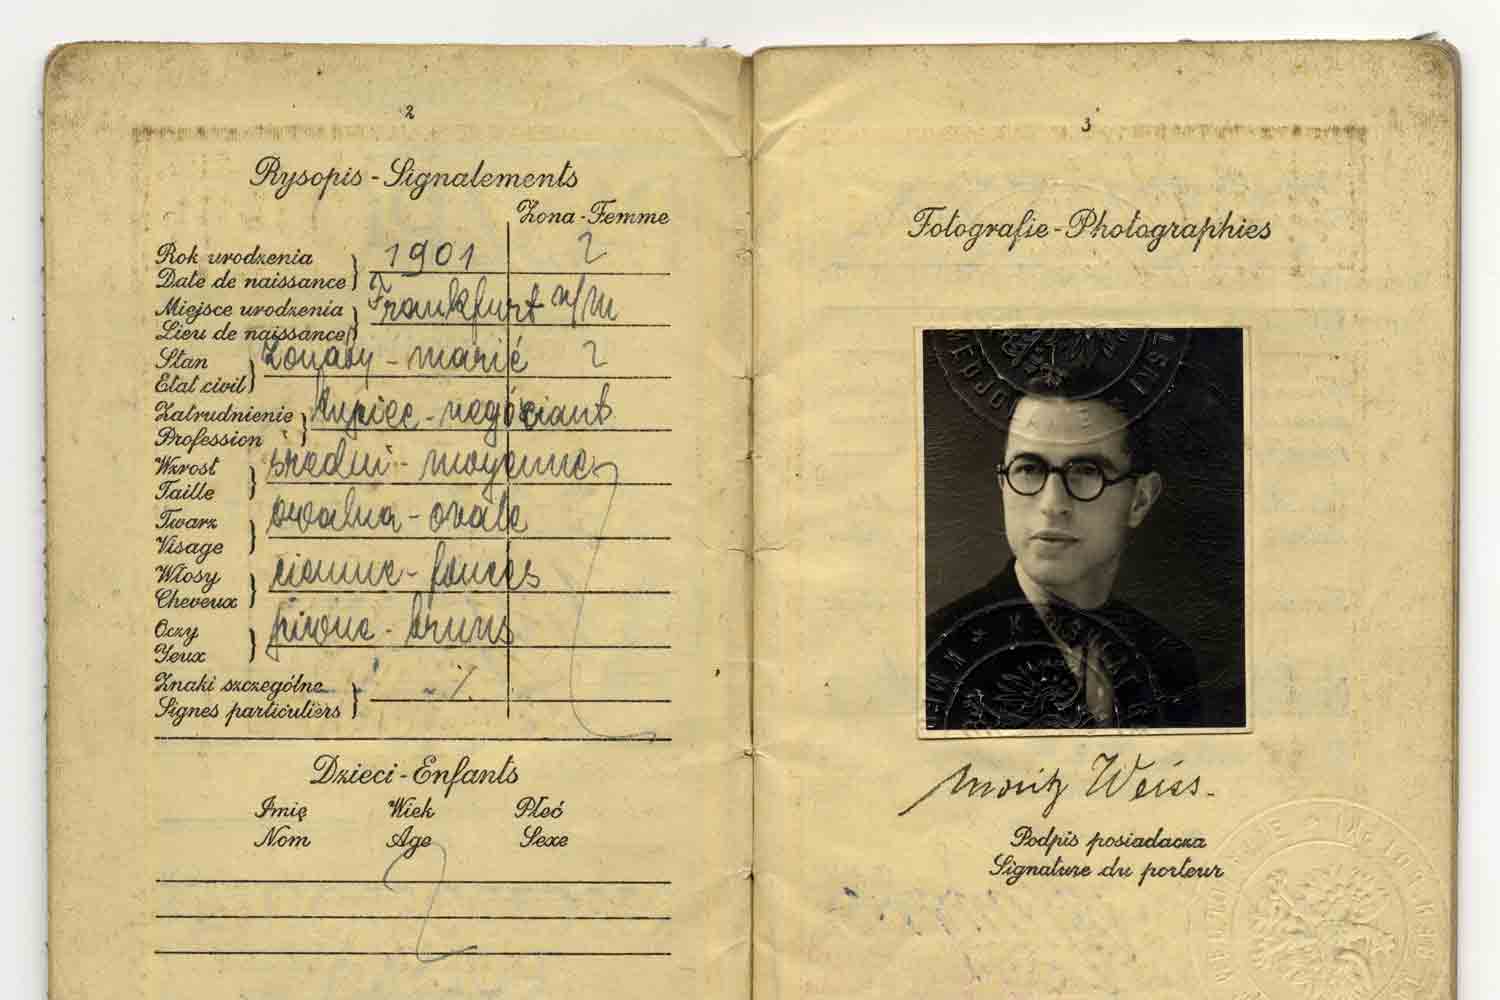 2
Rysopis - Signalements
Żona - Femme
Rok urodzenia
Date de naissance
1901
Miejsce urodzenia
Lieu de naissance
Frankfurt n/M
Stan
Etat civil
Żonaty - marié
Zatrudnienie
Profession
kupiec - negóciant
Wzrost
Taille
średni - moyenne
Twarz
Visage
owalna - ovale
Włosy
Cheveux
ciemne - foncés
Oczy
Yeux
piwne - bruns
Znaki szczególne
Signes particuliers
Dzieci - Enfants
Imię Wiek Płeć
Nom Age Sexe
3
Fotografie - Photographies
Moritz Weiss.
Podpis posiadacza
Signature du porteur